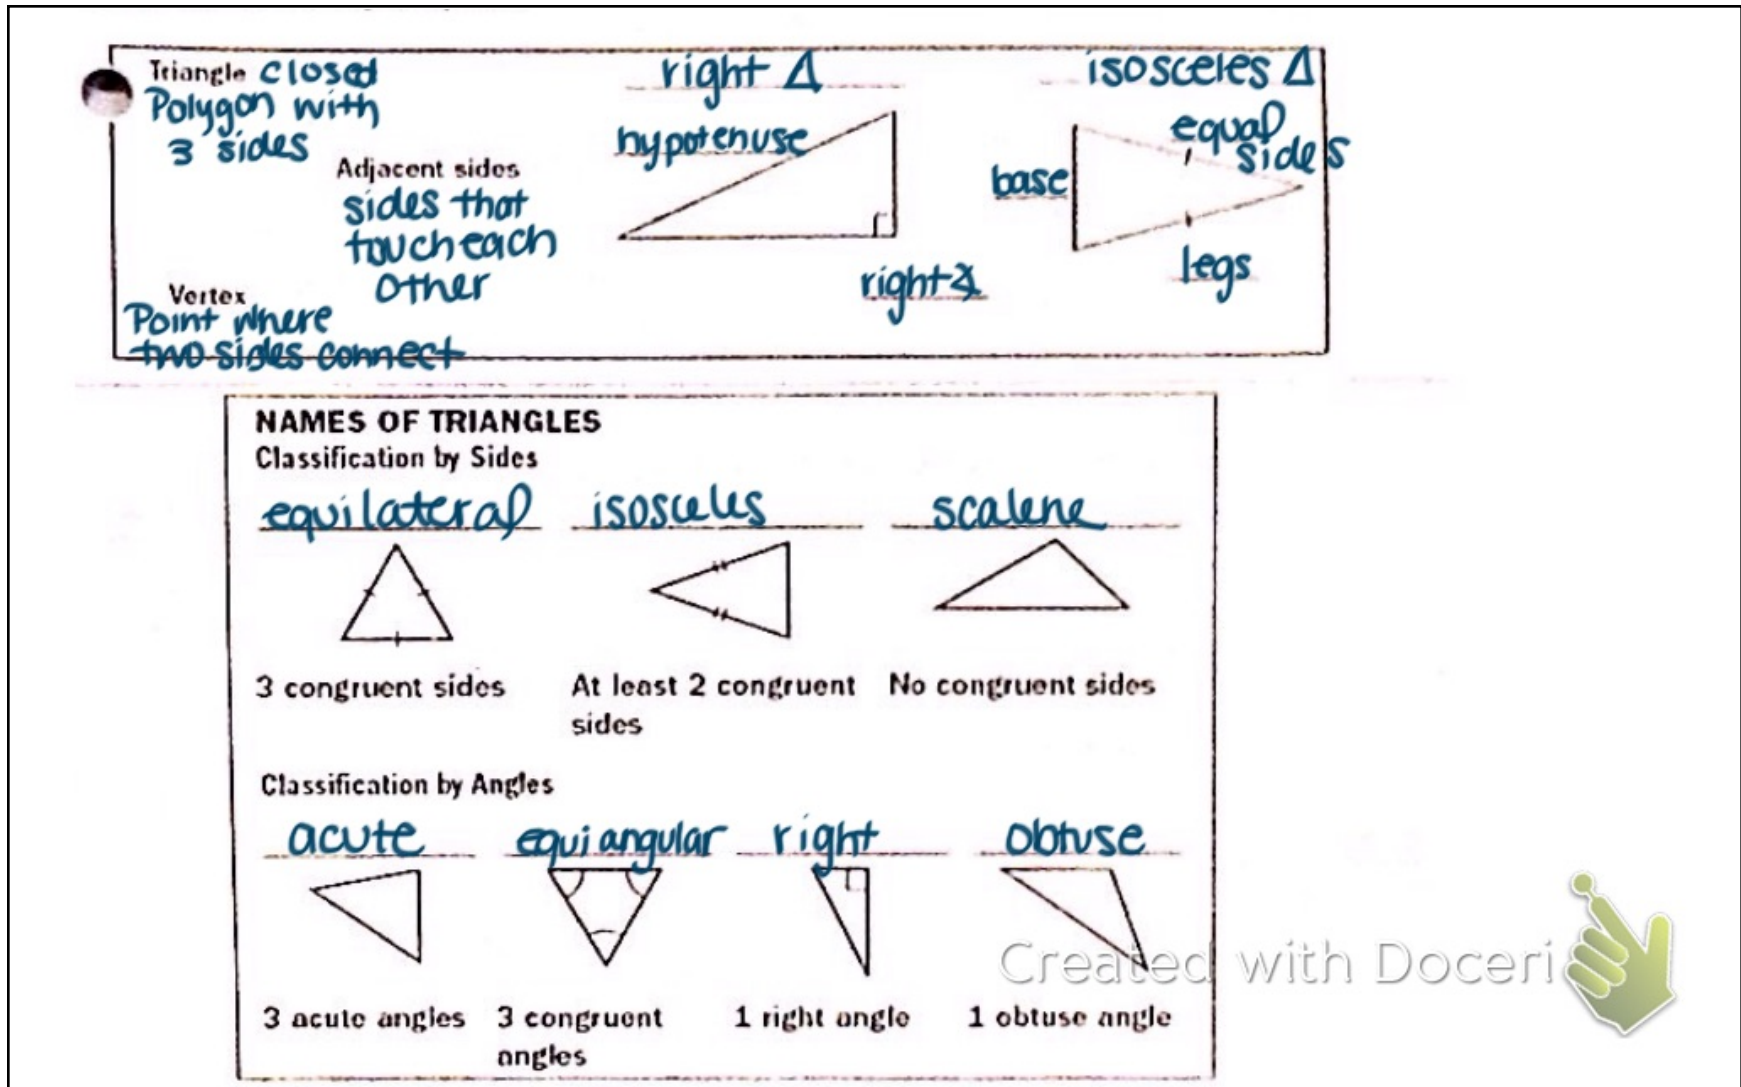 Triangle closed
Polygon with
3 sides
Adjacent sides
sides that
touch each
other
Vertex
Point where
two sides connect
right Δ
hypotenuse
right ∡
isosceles Δ
equal
sides
base
legs
NAMES OF TRIANGLES
Classification by Sides
equilateral isosceles scalene
3 congruent sides At least 2 congruent No congruent sides
sides
Classification by Angles
acute equiangular right obtuse
Created with Doceri
3 acute angles 3 congruent 1 right angle 1 obtuse angle
angles